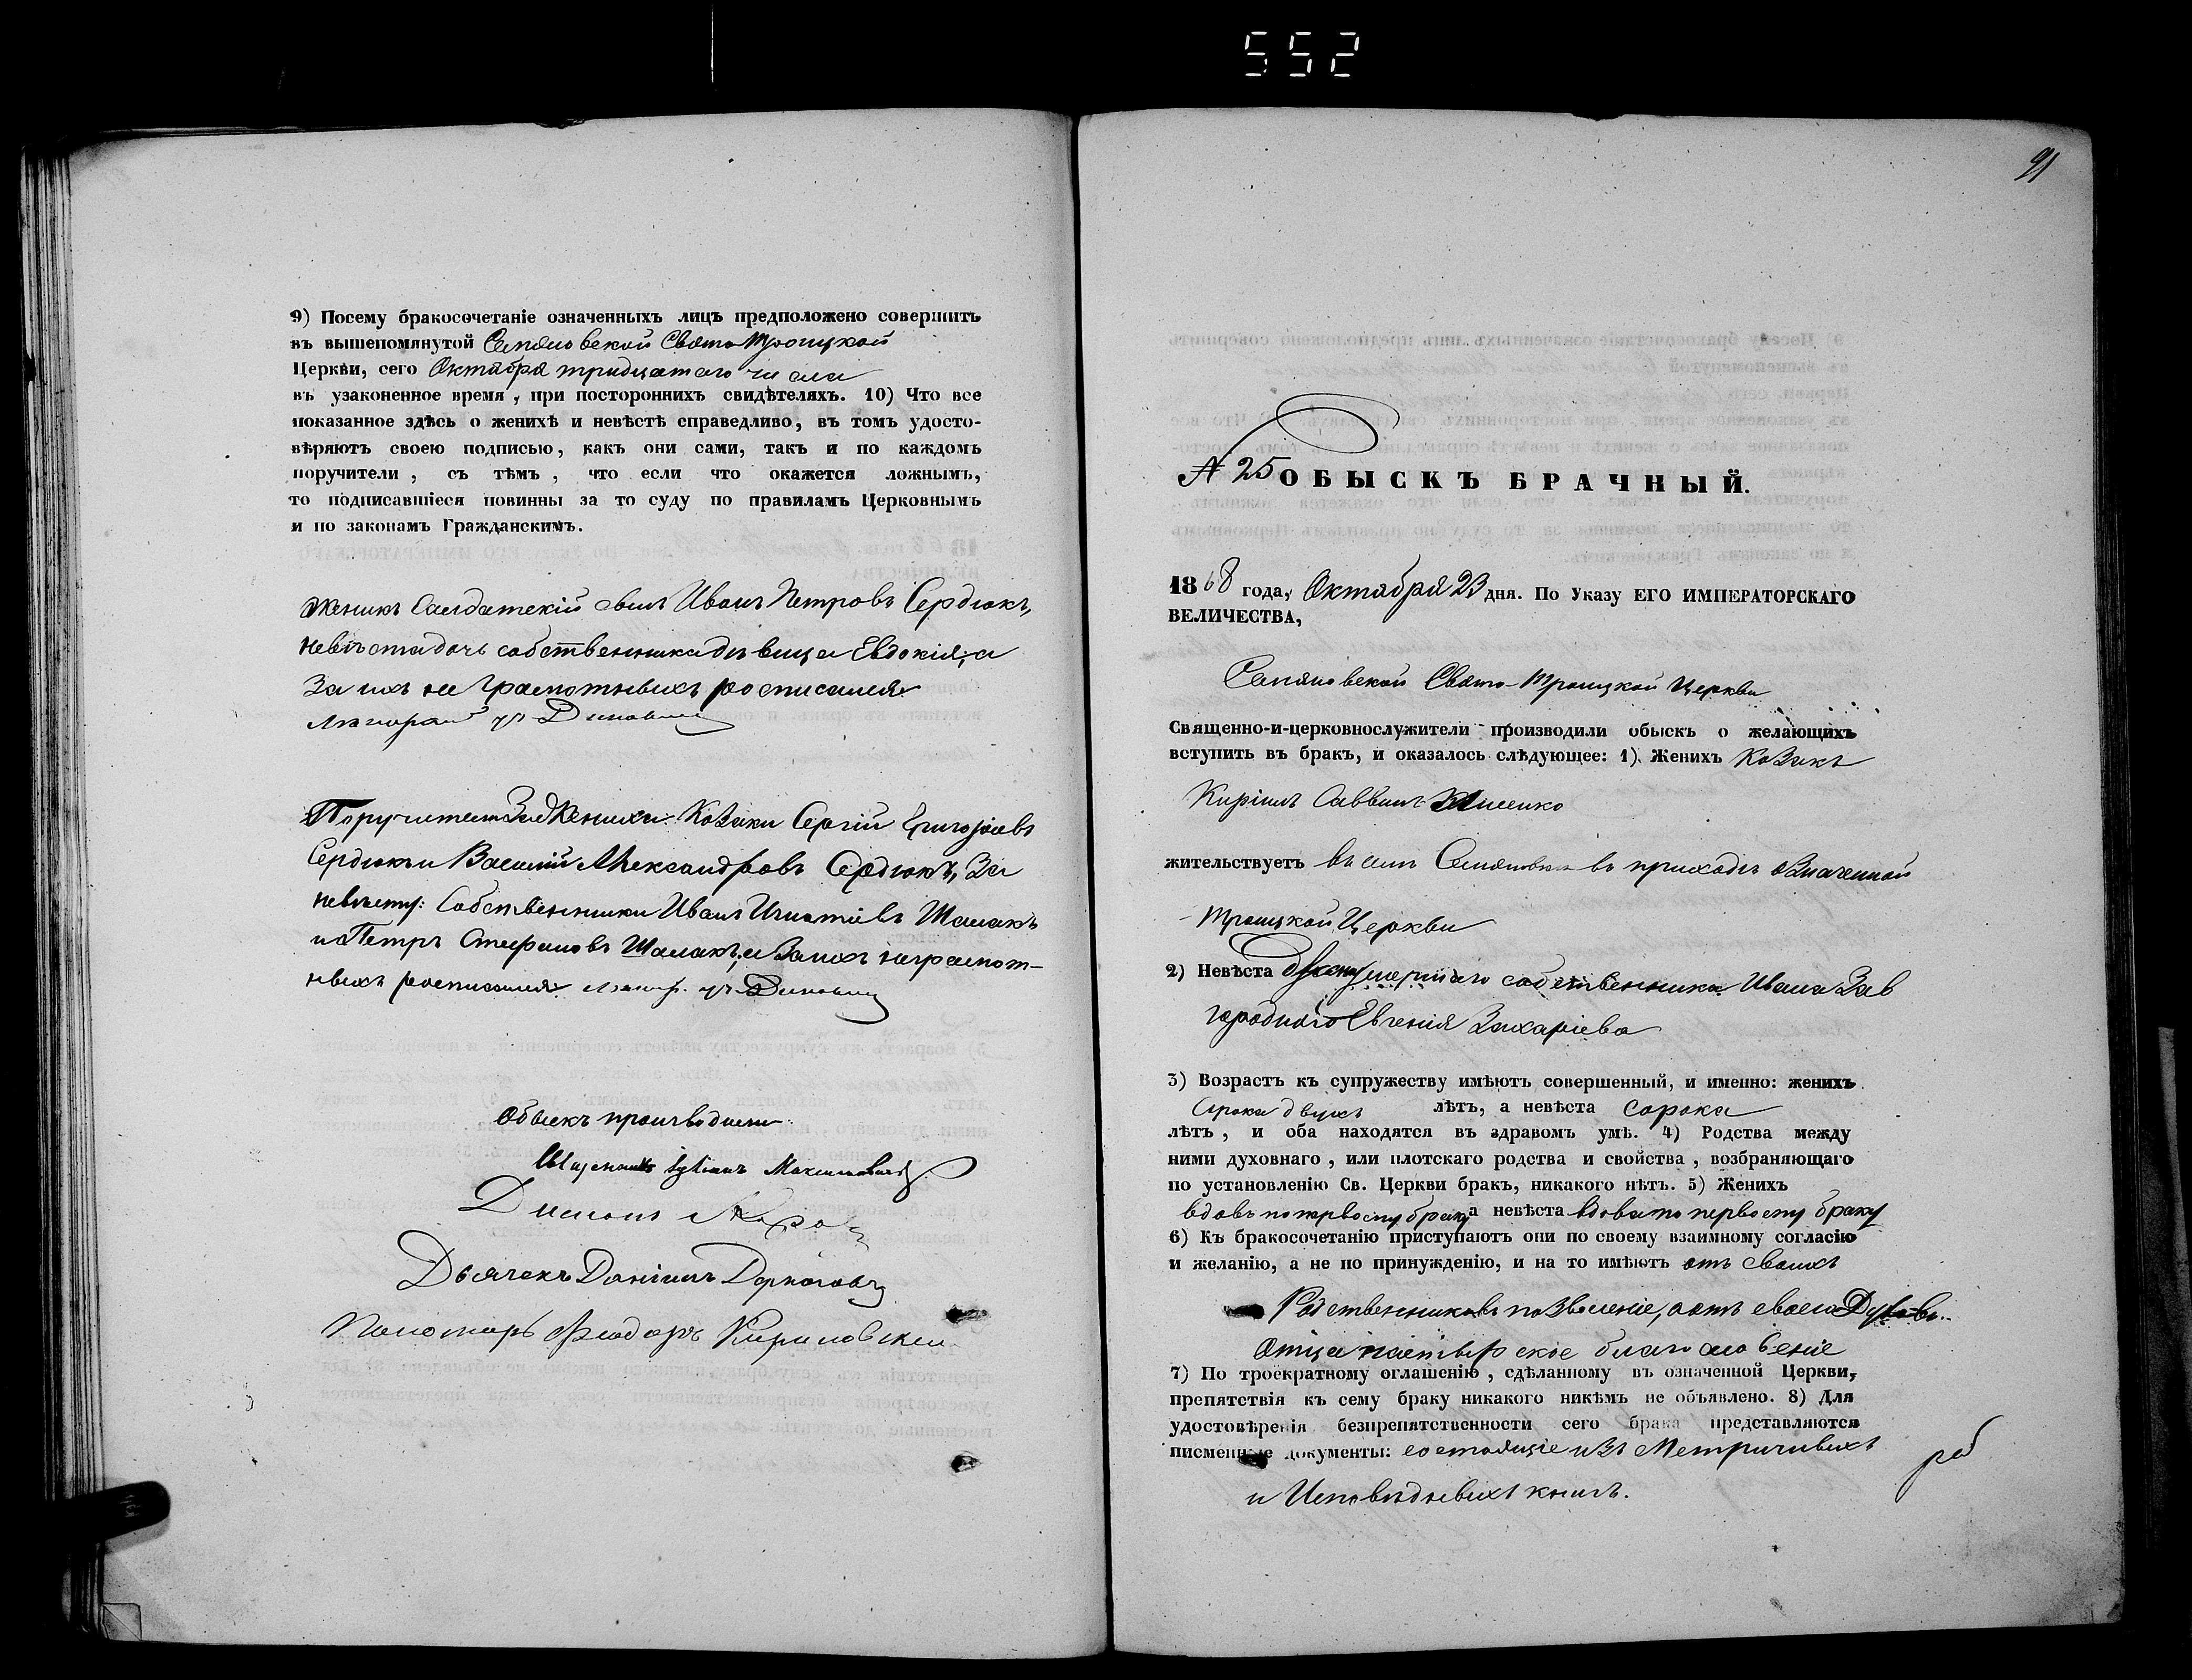 552
9) Посему бракосочетаніе означенныхъ лицъ предположено совершить
въ вышепомянутой Семяновской Свято-Троицкой
Церкви, сего Октября тридцатаго числа
въ узаконенное время, при постороннихъ свидѣтеляхъ. 10) Что все
показанное здѣсь о женихѣ и невѣстѣ справедливо, въ томъ удосто-
вѣряютъ своею подписью, какъ они сами, такъ и по каждомъ
поручители, съ тѣмъ, что если что окажется ложнымъ,
то подписавшіеся повинны за то суду по правиламъ Церковнымъ
и по законамъ Гражданскимъ.
Женихъ Салдатскій сынъ Иванъ Петровъ Сердюкъ,
невѣста дочь собственника дѣвица Евдокія, а
за ихъ не грамотныхъ росписался
Поручители За Жениха Козаки Сергій Григоріевъ
Сердюкъ и Василій Александровъ Сердюкъ, За
невѣсту: Собственники Иванъ Игнатіевъ Шамакъ
и Петръ Стефановъ Шамакъ, а За ихъ неграмот-
ныхъ росписался
Обыскъ производили
Священникъ Максимовичъ
Дьячекъ Даніилъ
Пономарь Феодоръ Кириловский
91
№ 25 ОБЫСКЪ БРАЧНЫЙ.
1868 года, Октября 23 дня. По Указу ЕГО ИМПЕРАТОРСКАГО
ВЕЛИЧЕСТВА,
Семяновской Свято-Троицкой Церкви
Священно-и-церковнослужители производили обыскъ о желающихъ
вступить въ бракъ, и оказалось слѣдующее: 1) Женихъ Козакъ
Кирілъ Саввинъ
жительствуетъ въ селѣ Семяновкѣ въ приходѣ означенной
Троицкой Церкви
2) Невѣста умершаго собственника Ивана Зав
городнаго Евгенія Захаріева
3) Возрастъ къ супружеству имѣютъ совершенный, и именно: женихъ
Сорока двухъ лѣтъ, а невѣста Сорока
лѣтъ, и оба находятся въ здравомъ умѣ. 4) Родства между
ними духовнаго, или плотскаго родства и свойства, возбраняющаго
по установленію Св. Церкви бракъ, никакого нѣтъ. 5) Женихъ
вдовъ по первому браку а невѣста вдова по первому браку
6) Къ бракосочетанію приступаютъ они по своему взаимному согласію
и желанію, а не по принужденію, и на то имѣютъ отъ своихъ
Родственниковъ позволеніе, а отъ своего Духовн.
Отца пастырское благословеніе
7) По троекратному оглашенію, сдѣланному въ означенной Церкви,
препятствія къ сему браку никакого никѣмъ не объявлено. 8) Для
удостовѣренія безпрепятственности сего брака представляются
писменные документы: состоящіе изъ Метричныхъ
и Исповѣдныхъ книгъ.